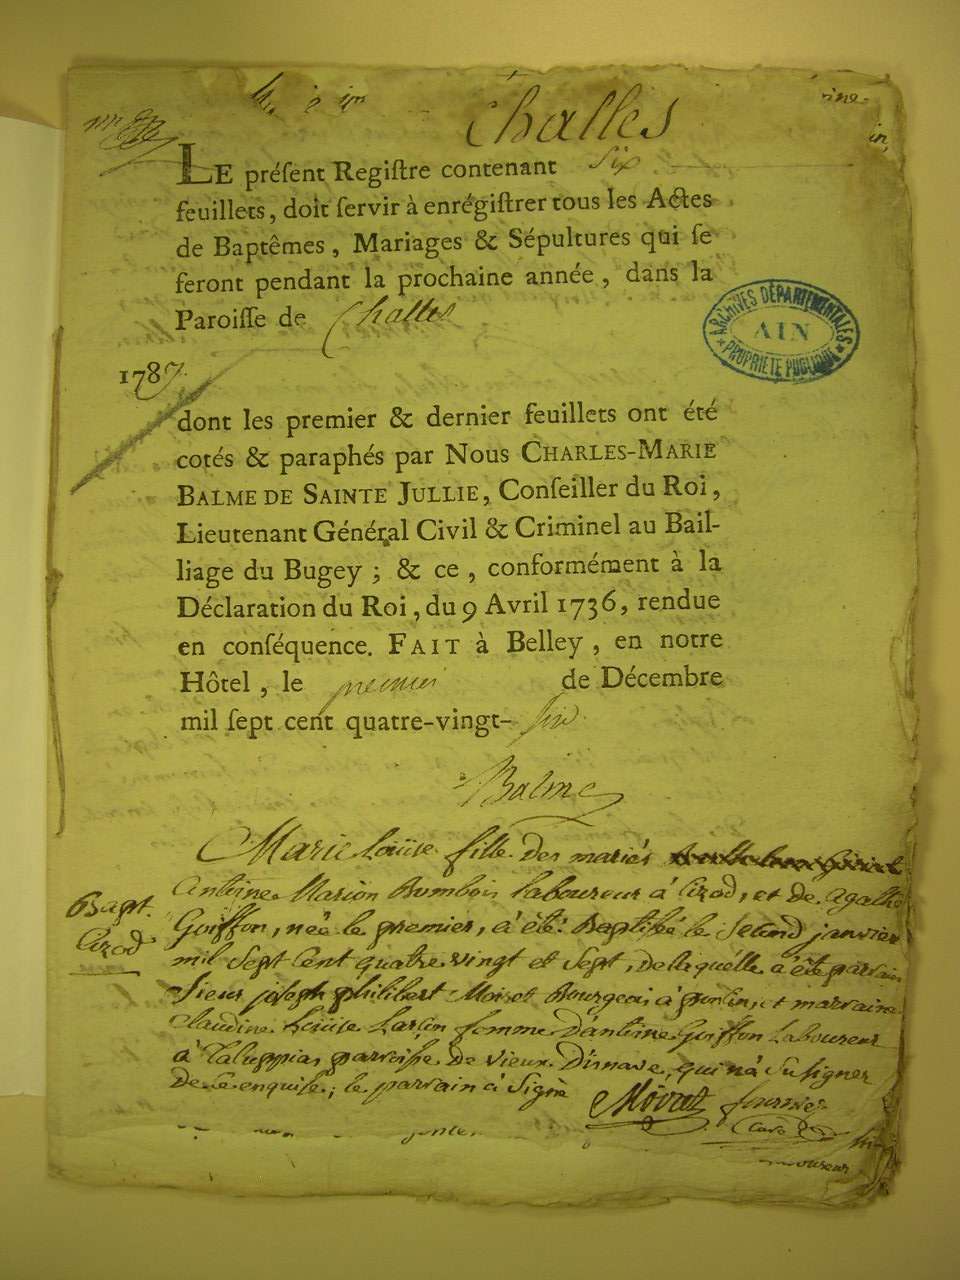 Challes
LE préſent Regiſtre contenant six
feuillets, doit ſervir à enrégiſtrer tous les Actes
de Baptêmes, Mariages & Sépultures qui ſe
feront pendant la prochaine année, dans la
Paroiſſe de Challes
ARCHIVES DÉPARTEMENTALES
AIN
PROPRIÉTÉ PUBLIQUE
1787
dont les premier & dernier feuillets ont été
cotés & paraphés par Nous CHARLES-MARIE
BALME DE SAINTE JULLIE, Conſeiller du Roi,
Lieutenant Général Civil & Criminel au Bail-
liage du Bugey ; & ce, conformément à la
Déclaration du Roi, du 9 Avril 1736, rendue
en conſéquence. FAIT à Belley, en notre
Hôtel, le premier de Décembre
mil ſept cent quatre-vingt- six
Balme
Marie Loüise fille des mariés
Bapt.
Antoine Marion Bombois laboureur à Cizod, et de agathe
Goiffon, née le premier, a été Baptisée le second janvier
mil sept cent quatre vingt et sept, de laquelle a été parrain
Sieur joseph philibert Moiret Bourgeois à poncin, et marraine
Claudine Loüise femme D'antoine Goiffon Laboureur
à paroisse de vieux D'isnave, qui n'a su signer
de ce enquise; le parrain a signé
Moiret
Curé